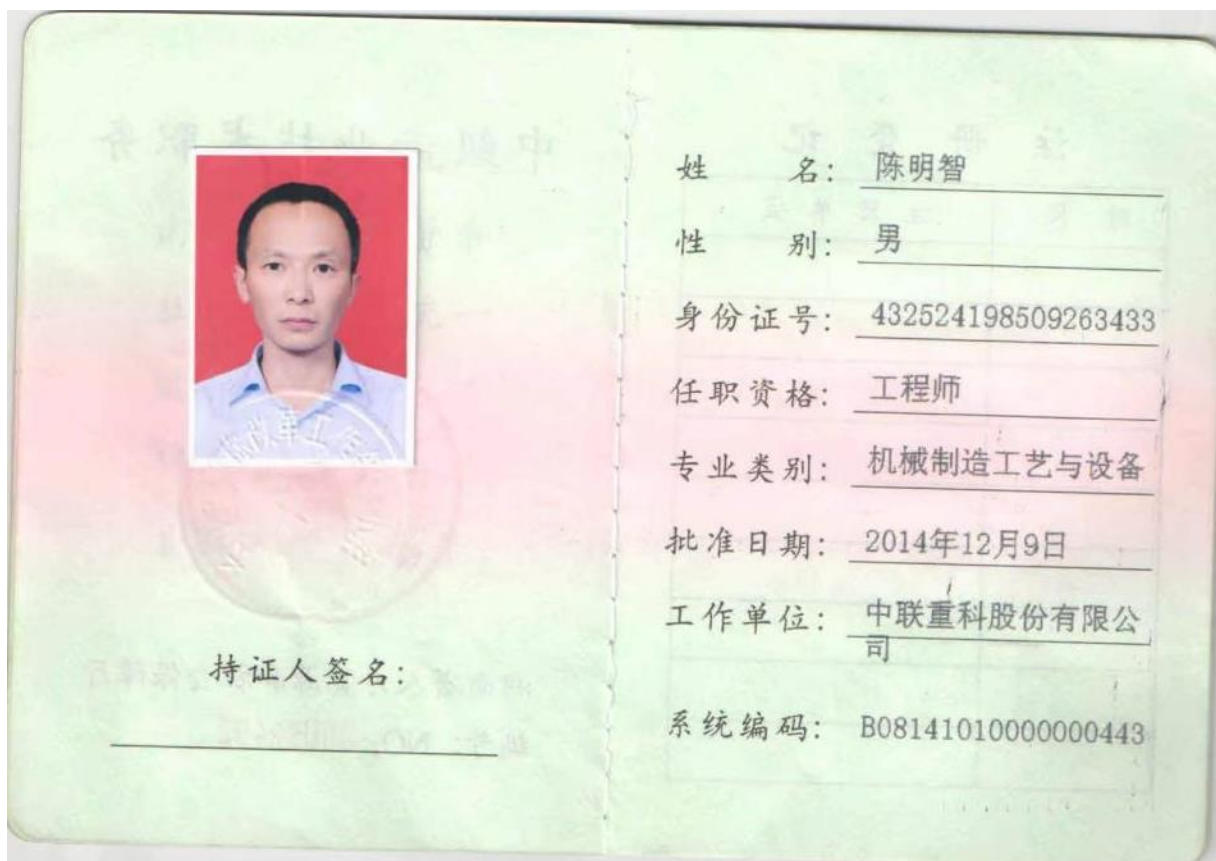 持证人签名:
姓 名: 陈明智
性 别: 男
身份证号: 432524198509263433
任职资格: 工程师
专业类别: 机械制造工艺与设备
批准日期: 2014年12月9日
工作单位: 中联重科股份有限公
司
系统编码: B08141010000000443